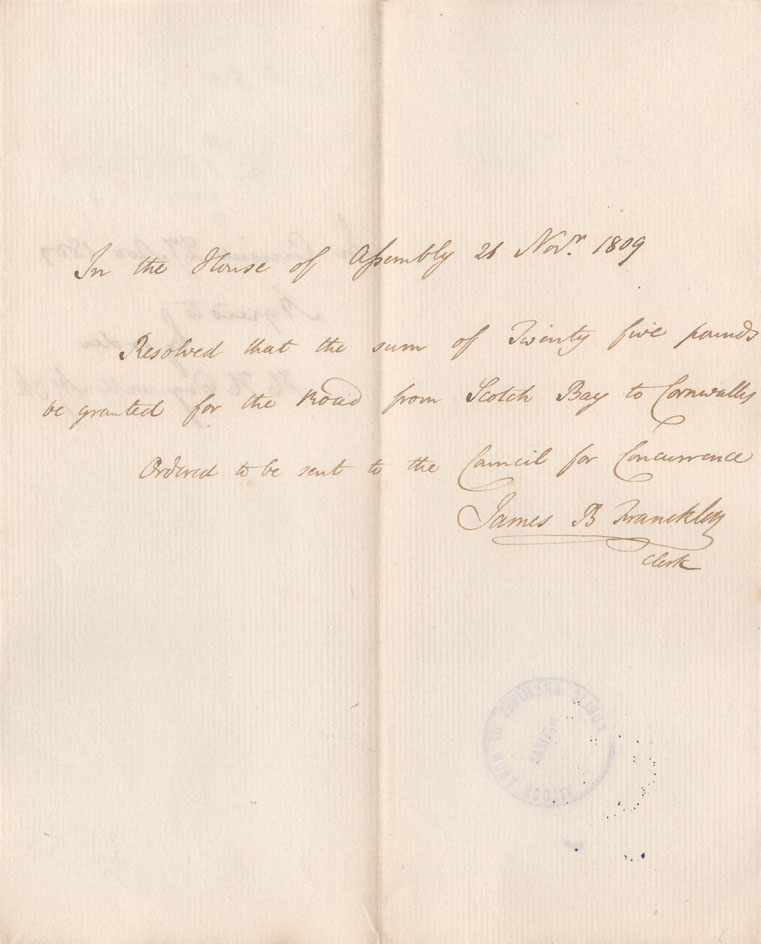 In the House of Assembly 21 Novr. 1809
Resolved that the sum of Twenty five pounds
be granted for the Road from Scotch Bay to Cornwallis
Ordered to be sent to the Council for Concurrence
James B Franckling
Clerk
PUBLIC ARCHIVES OF NOVA SCOTIA
HALIFAX